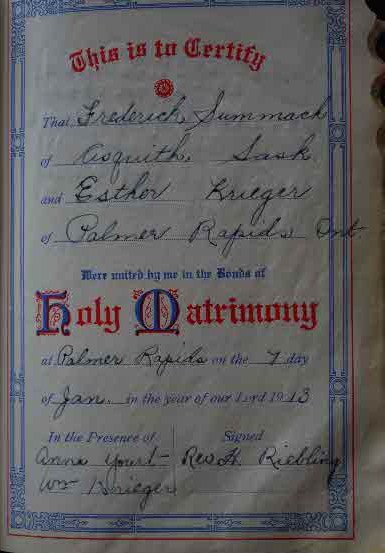 This is to Certify
That Frederick Summach
of Asquith, Sask
and Esther Krieger
of Palmer Rapids Ont
Were united by me in the Bonds of
Holy Matrimony
at Palmer Rapids on the 7 day
of Jan. in the year of our Lord 1913
In the Presence of
Anna Yourt
Wm Krieger
Signed
Rev. H. Riebling